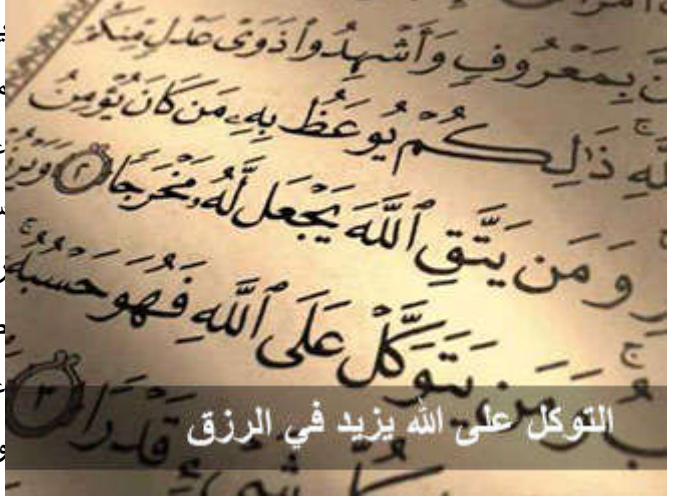 نَّ بِمَعْرُوفٍ وَأَشْهِدُوا۟ ذَوَىْ عَدْلٍ مِّنكُمْ
ذَٰلِكُمْ يُوعَظُ بِهِۦ مَن كَانَ يُؤْمِنُ
وَمَن يَتَّقِ ٱللَّهَ يَجْعَل لَّهُۥ مَخْرَجًا ٢
وَمَن يَتَوَكَّلْ عَلَى ٱللَّهِ فَهُوَ حَسْبُهُۥٓ
قَدْرًا ٣
التوكل على الله يزيد في الرزق